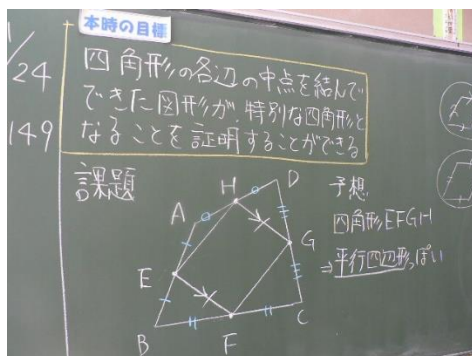 本時の目標
1/24
149
四角形の各辺の中点を結んで
できた図形が、特別な四角形と
なることを証明することができる
課題
D
H
A
G
E
C
B
F
予想
四角形EFGH
⇒平行四辺形っぽい